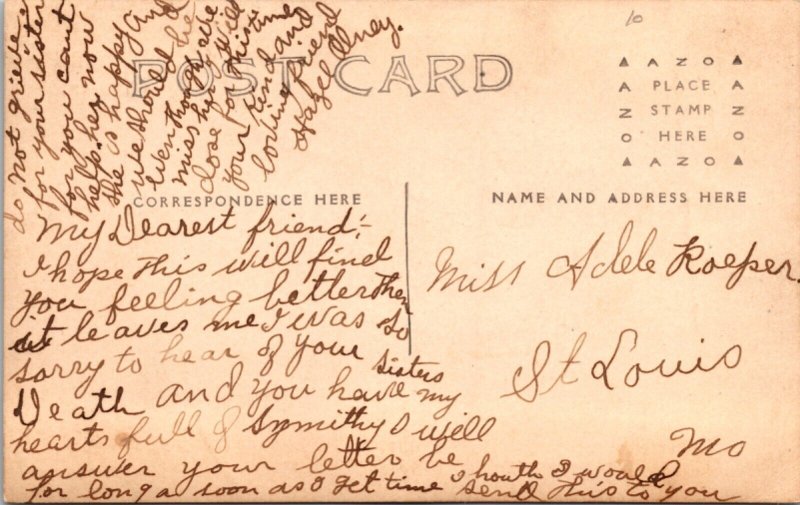 10
POST CARD
AZO
PLACE
STAMP
HERE
AZO
CORRESPONDENCE HERE
NAME AND ADDRESS HERE
My Dearest friend:-
I hope this will find
you feeling better then
it leaves me I was so
sorry to hear of your sisters
Death and you have my
hearts full of Symithy I will
answer your letter be
for long a soon as I get time I houth I would
send this to you
do not grieve
for your sister
for you cant
help her now
she is happy and
we should be
even though we
miss her I will
close for this time
your kind and
loving friend
Hazel Olney.
Miss Adele Koeper.
St Louis
Mo